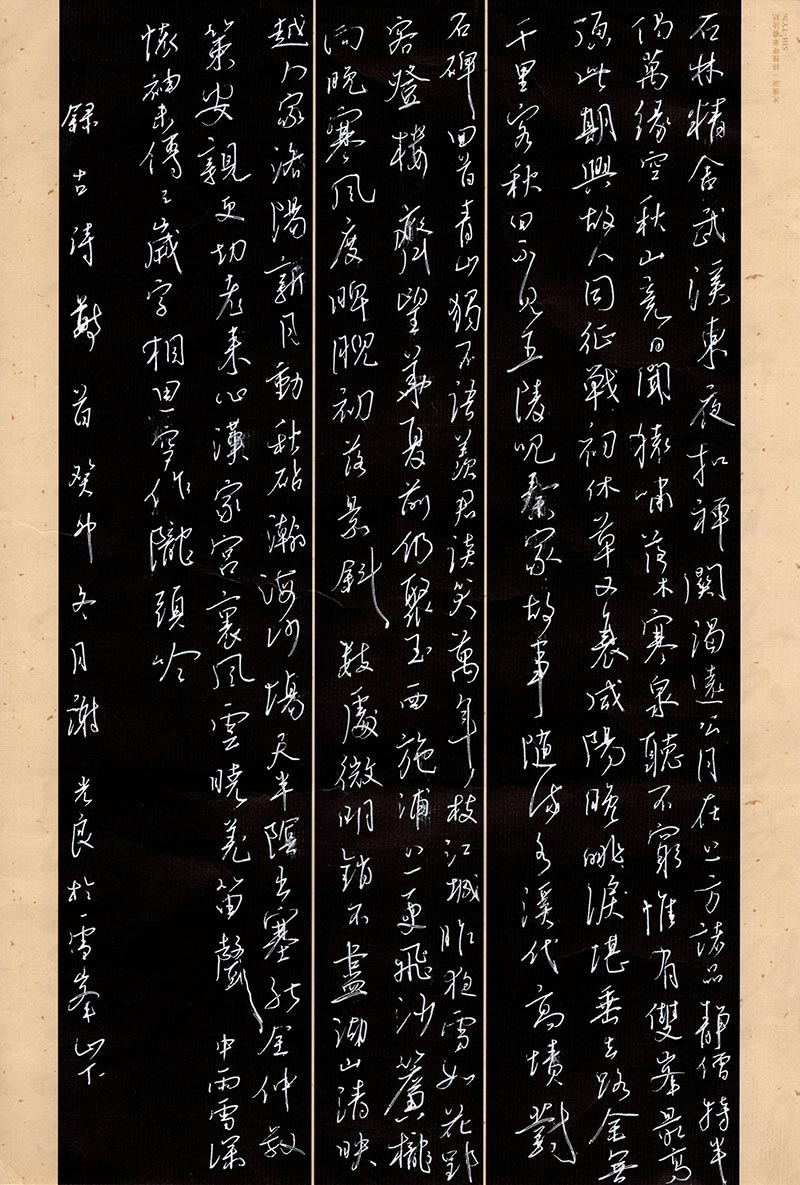 石林精舍武溪東夜扣禪關渴遠公月在上方諸品靜僧持半
偈萬緣空秋山竟日聞猿嘯落木寒泉聽不窮惟有雙峯最高
頂此期興故人同征戰初休草又衰咸陽晚眺淚堪垂去路全無
千里客秋田不見五陵兒秦家故事隨流水漢代高墳對
石碑回首青山獨不語羨君談笑萬年枝江城昨夜雪如花郢
客登樓齊望華夏前仍聚玉西施浦上更飛沙簾櫳
向晚寒風度睥睨初落景斜數處微明銷不盡湖山清映
越人家洛陽新月動秋砧瀚海沙場天半陰出塞能全仲叔
策安親更切老萊心漢家宮裏風雲曉羌笛聲中雨雪深
懷袖未傳三歲字相思空作隴頭吟
錄古詩數首癸卯冬月謝光良於雪峯山下